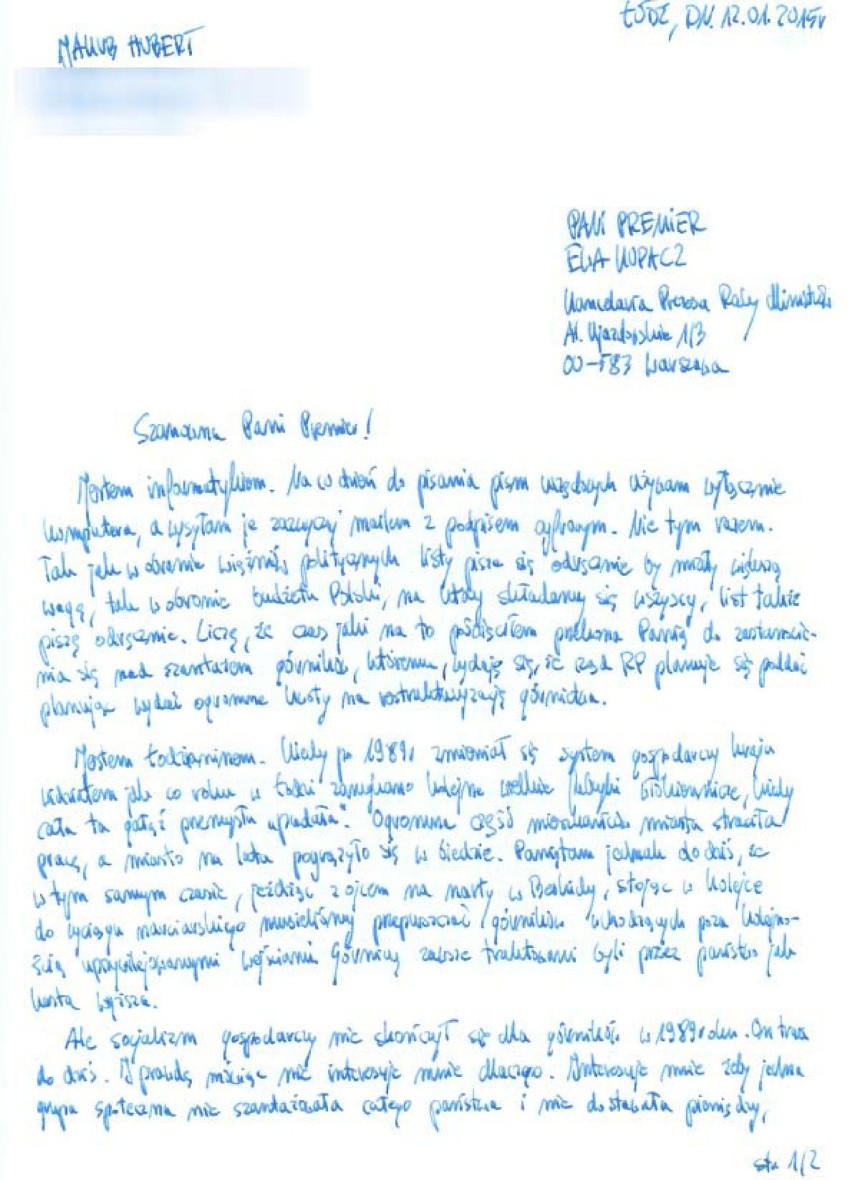 ŁÓDŹ, DN. 12.01.2015r
JAKUB HUBERT
PANI PREMIER
EWA KOPACZ
Kancelaria Prezesa Rady Ministrów
Al. Ujazdowskie 1/3
00-583 Warszawa
Szanowna Pani Premier!
Jestem informatykiem. Na co dzień do pisania pism urzędowych używam wyłącznie
komputera, a wysyłam je zazwyczaj mailem z podpisem cyfrowym. Nie tym razem.
Tak jak w obronie więźniów politycznych listy pisze się odręcznie by miały większą
wagę, tak w obronie budżetu Polski, na który składamy się wszyscy, list także
piszę odręcznie. Liczę, że czas jaki na to poświęciłem przekona Panią do zastanowie-
nia się nad szantażem górników, któremu, wydaje się, że rząd RP planuje się poddać
planując wydać ogromne kwoty na restrukturyzację górnictwa.
Jestem łodzianinem. Kiedy po 1989r zmieniał się system gospodarczy kraju
widziałem jak co roku w Łodzi zamykano kolejne wielkie fabryki włókiennicze, kiedy
cała ta gałąź przemysłu upadała. Ogromna część mieszkańców miasta straciła
pracę, a miasto na lata pogrążyło się w biedzie. Pamiętam jednak do dziś, że
w tym samym czasie, jeżdżąc z ojcem na narty w Beskidy, stojąc w kolejce
do wyciągu narciarskiego musieliśmy przepuszczać górników wchodzących poza kolejno-
ścią uprzywilejowanymi wejściami. Górnicy zawsze traktowani byli przez państwo jak
kasta wyższa.
Ale socjalizm gospodarczy nie skończył się dla górników w 1989 roku. On trwa
do dziś. I prawdę mówiąc nie interesuje mnie dlaczego. Interesuje mnie żeby jedna
grupa społeczna nie szantażowała całego państwa i nie dostawała pieniędzy,
str 1/2